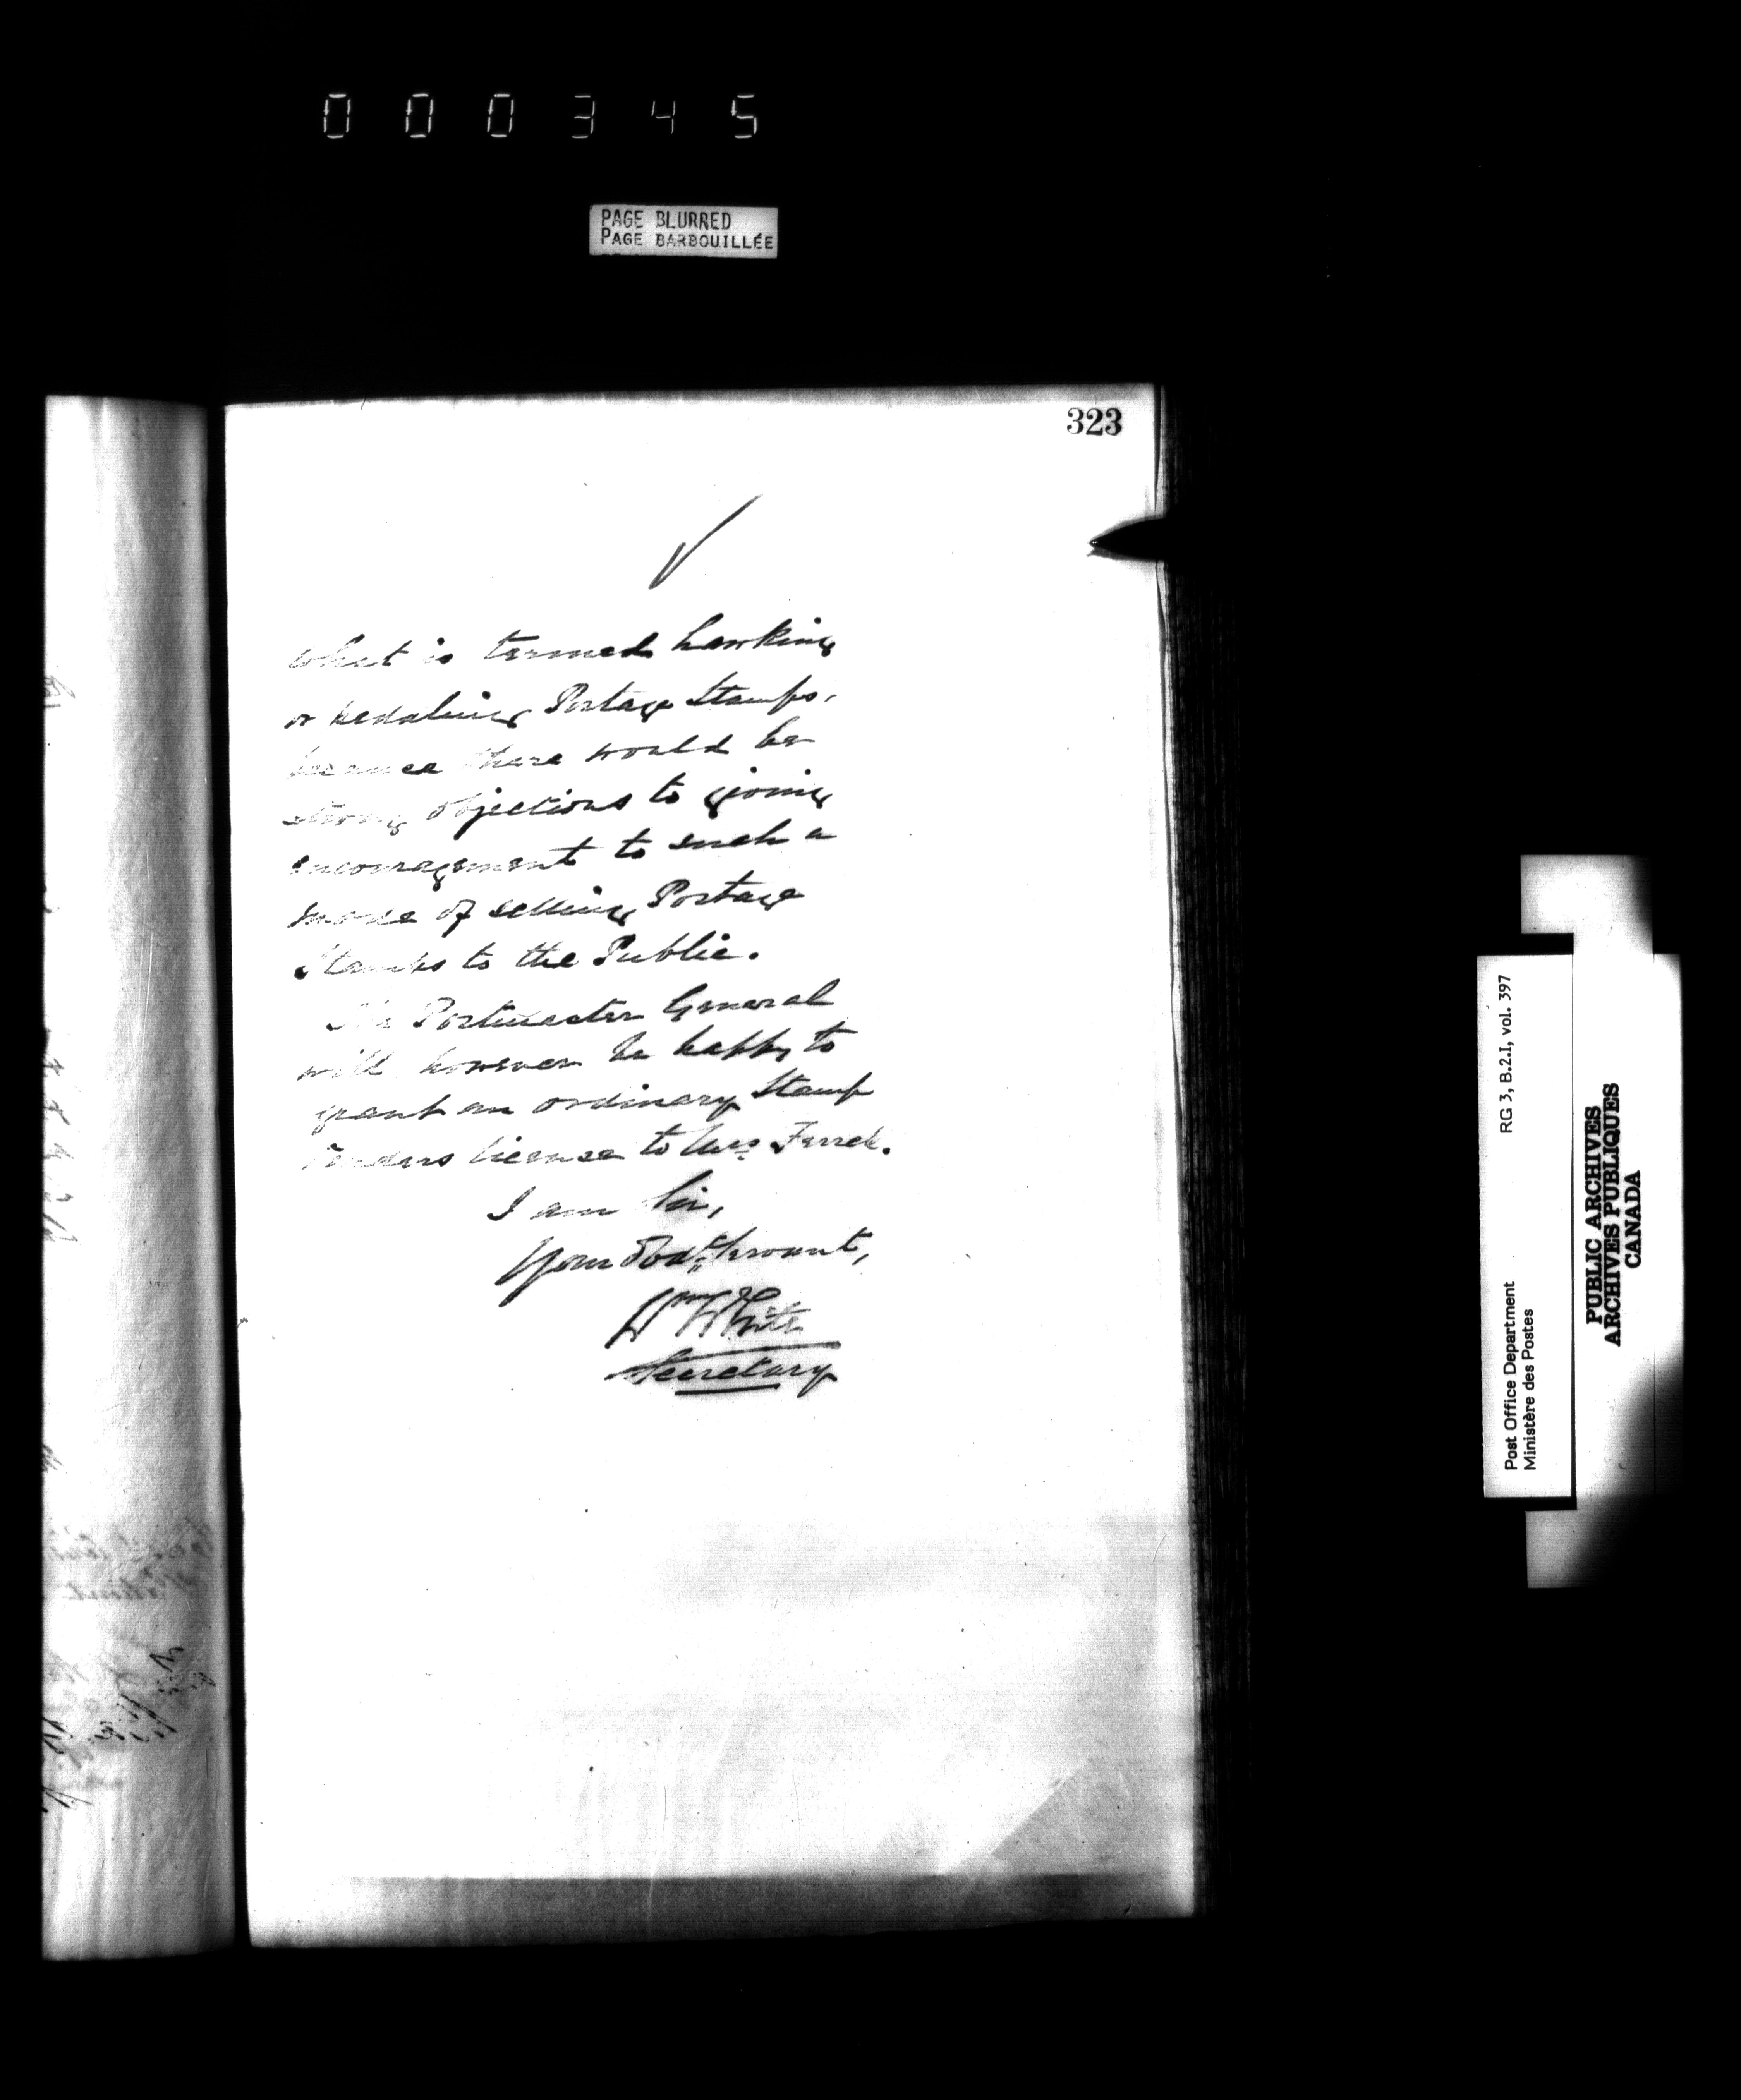 000345
PAGE BLURRED
PAGE BARBOUILLÉE
323
what is termed hawking
or pedaling Postage Stamps,
because there would be
strong objections to giving
encouragement to such a
mode of selling Postage
Stamps to the Public.
The Postmaster General
will however be happy to
grant an ordinary Stamp
Vendors license to
I am Sir,
Your Obdt. Servant,
Wm White
Secretary
RG 3, B.2.I, vol. 397
Post Office Department
Ministère des Postes
PUBLIC ARCHIVES
ARCHIVES PUBLIQUES
CANADA